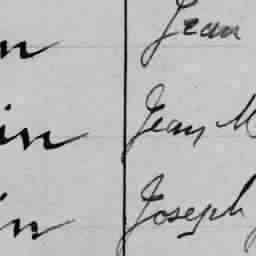 n Jean
in Jean M
in Joseph